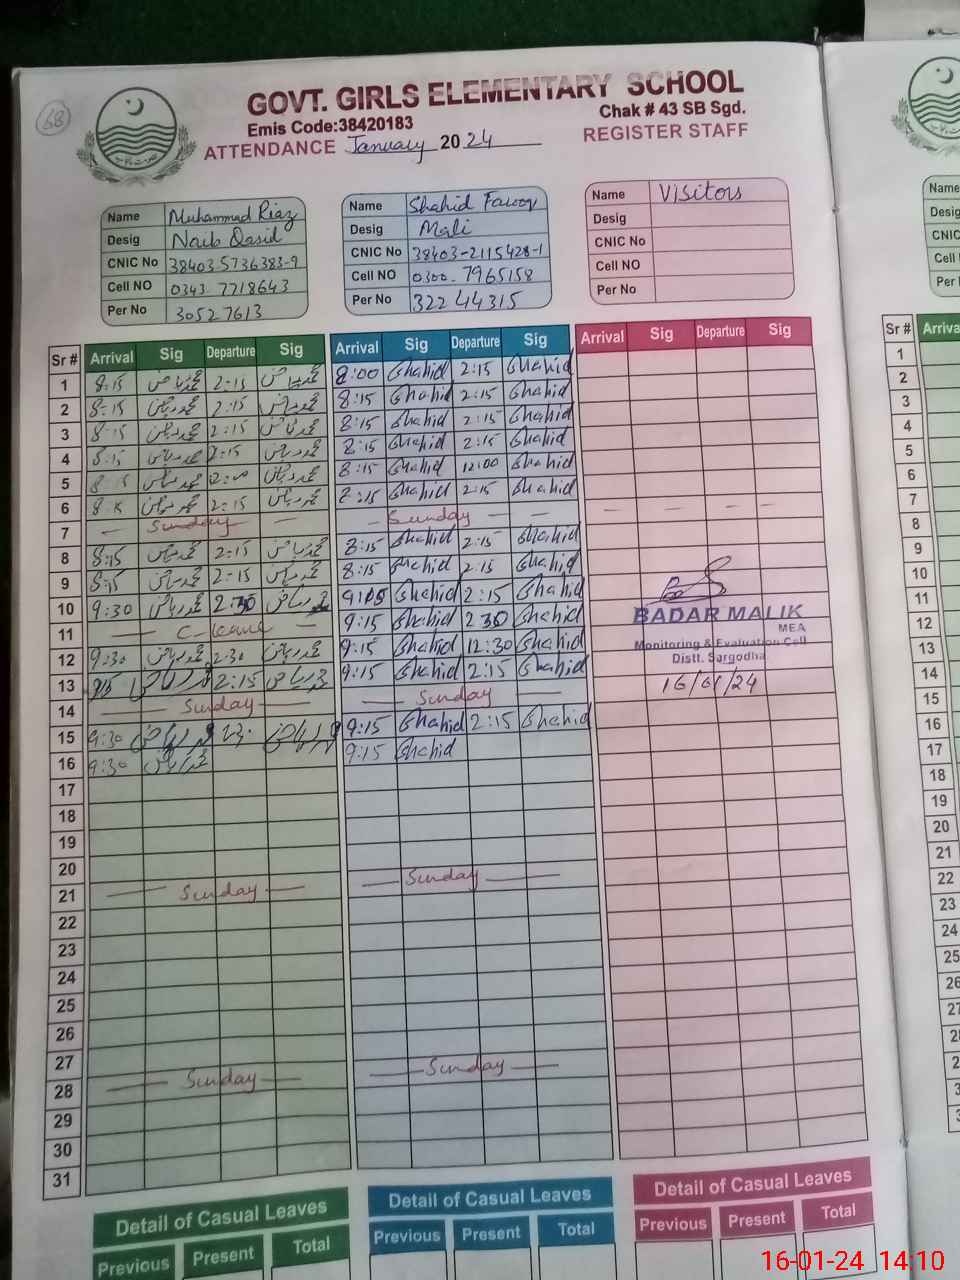 68
GOVT. GIRLS ELEMENTARY SCHOOL
Emis Code:38420183
Chak # 43 SB Sgd.
ATTENDANCE January 2024
REGISTER STAFF
Name Muhammad Riaz
Desig Naib Qasid
CNIC No 38403-5736383-9
Cell NO 0343 7718643
Per No 30527613
Name Shahid Farooq
Desig Mali
CNIC No 38403-2115428-1
Cell NO 0300-7965158
Per No 32244315
Name Visitors
Desig
CNIC No
Cell NO
Per No
Sr # Arrival Sig Departure Sig Arrival Sig Departure Sig Arrival Sig Departure Sig
1 8:15 محمد ریاض 2:15 محمد ریاض 8:00 Shahid 2:15 Shahid
2 8:15 محمد ریاض 2:15 محمد ریاض 8:15 Shahid 2:15 Shahid
3 8:15 محمد ریاض 2:15 محمد ریاض 8:15 Shahid 2:15 Shahid
4 8:15 محمد ریاض 2:15 محمد ریاض 8:15 Shahid 2:15 Shahid
5 8:15 محمد ریاض محمد ریاض 8:15 Shahid 12:00 Shahid
6 محمد ریاض 2:15 محمد ریاض Shahid 2:15 Shahid
7 Sunday Sunday
8 8:15 محمد ریاض 2:15 محمد ریاض 8:15 Shahid 2:15 Shahid
9 8:15 محمد ریاض 2:15 محمد ریاض 8:15 Shahid 2:15 Shahid
10 9:30 محمد ریاض 2:30 محمد ریاض Shahid 2:15 Shahid
11 C-leave 9:15 Shahid 2 30 Shahid
12 9:30 محمد ریاض 2:30 محمد ریاض 9:15 Shahid 12:30 Shahid
13 محمد ریاض 2:15 محمد ریاض 9:15 Shahid 2:15 Shahid
14 Sunday Sunday
15 9:30 محمد ریاض محمد ریاض 9:15 Shahid 2:15 Shahid
16 9:30 محمد ریاض 9:15 Shahid
17
18
19
20
21 Sunday Sunday
22
23
24
25
26
27
28 Sunday Sunday
29
30
31
BADAR MALIK
MEA
Monitoring & Evaluation Cell
Distt. Sargodha
16/01/24
Detail of Casual Leaves
Previous Present Total
Detail of Casual Leaves
Previous Present Total
Detail of Casual Leaves
Previous Present Total
Name
Desig
CNIC
Cell
Per
Sr # Arriva
1
2
3
4
5
6
7
8
9
10
11
12
13
14
15
16
17
18
19
20
21
22
23
24
25
26
27
16-01-24 14:10